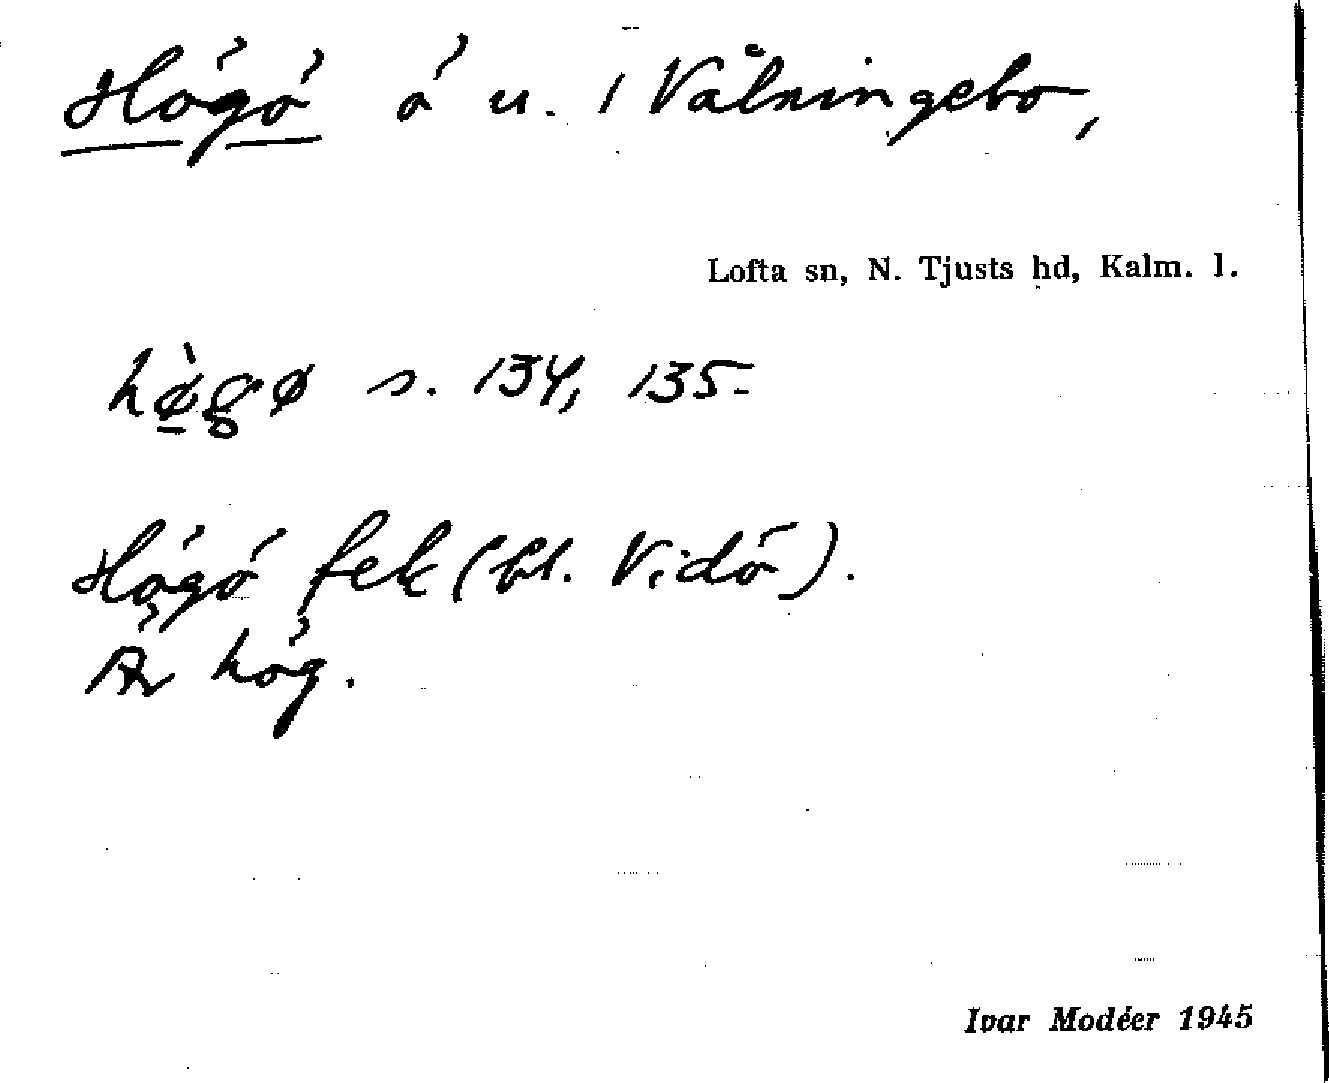 Högö ö u. / Vålningebo,
Lofta sn, N. Tjusts hd, Kalm. l.
hø̀gø s. 134, 135.
Högö fek (bl. Vidö).
Är hög.
Ivar Modéer 1945